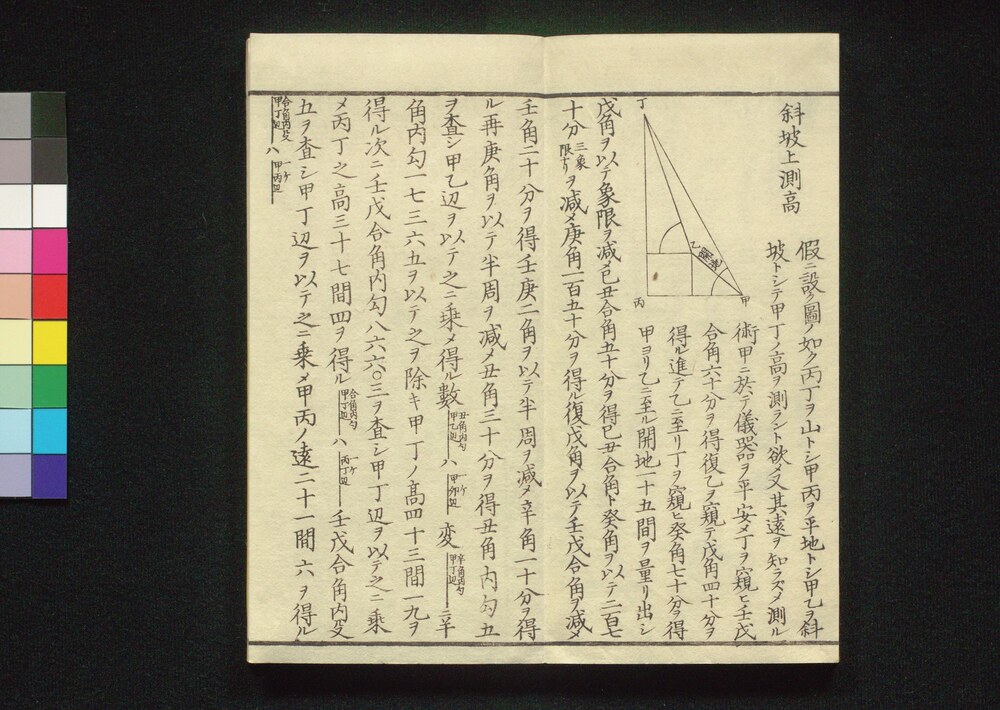 斜坡上測高
假ニ設ク圖ノ如ク丙丁ヲ山トシ甲丙ヲ平地トシ甲乙ヲ斜
坡トシテ甲丁ノ高ヲ測ラント欲メ又其遠ヲ知ラズメ測ル
術甲ニ於テ儀器ヲ平安メ丁ヲ窺ヒ壬戊
合角六十分ヲ得復乙ヲ窺テ戊角四十分ヲ
得ル進テ乙ニ至リ丁ヲ窺ヒ癸角七十分ヲ得
甲ヨリ乙ニ至ル開地一十五間ヲ量リ出シ
丁
乙
甲
丙
戊角ヲ以テ象限ヲ減メ己丑合角五十分ヲ得己丑合角ト癸角ヲ以テ二百七
十分三象限ナリヲ減メ庚角一百五十分ヲ得ル復戊角ヲ以テ壬戊合角ヲ減メ
壬角二十分ヲ得壬庚二角ヲ以テ半周ヲ減メ辛角一十分ヲ得
ル再庚角ヲ以テ半周ヲ減メ丑角三十分ヲ得丑角内勾五
ヲ査シ甲乙辺ヲ以テ之ニ乗メ得ル數丑角内勾甲乙辺ハ一ケ甲卯辺変辛角内勾甲丁辺三辛
角内勾一七三六五ヲ以テ之ヲ除キ甲丁ノ高四十三間一九ヲ
得ル次ニ壬戊合角内勾八六六〇三ヲ査シ甲丁辺ヲ以テ之ニ乗
メ丙丁之高三十七間四ヲ得ル合角内勾甲丁辺ハ一ケ丙丁辺壬戊合角内殳
五ヲ査シ甲丁辺ヲ以テ之ニ乗メ甲丙ノ遠二十一間六ヲ得ル
合角内殳甲丁辺ハ一ケ甲丙辺